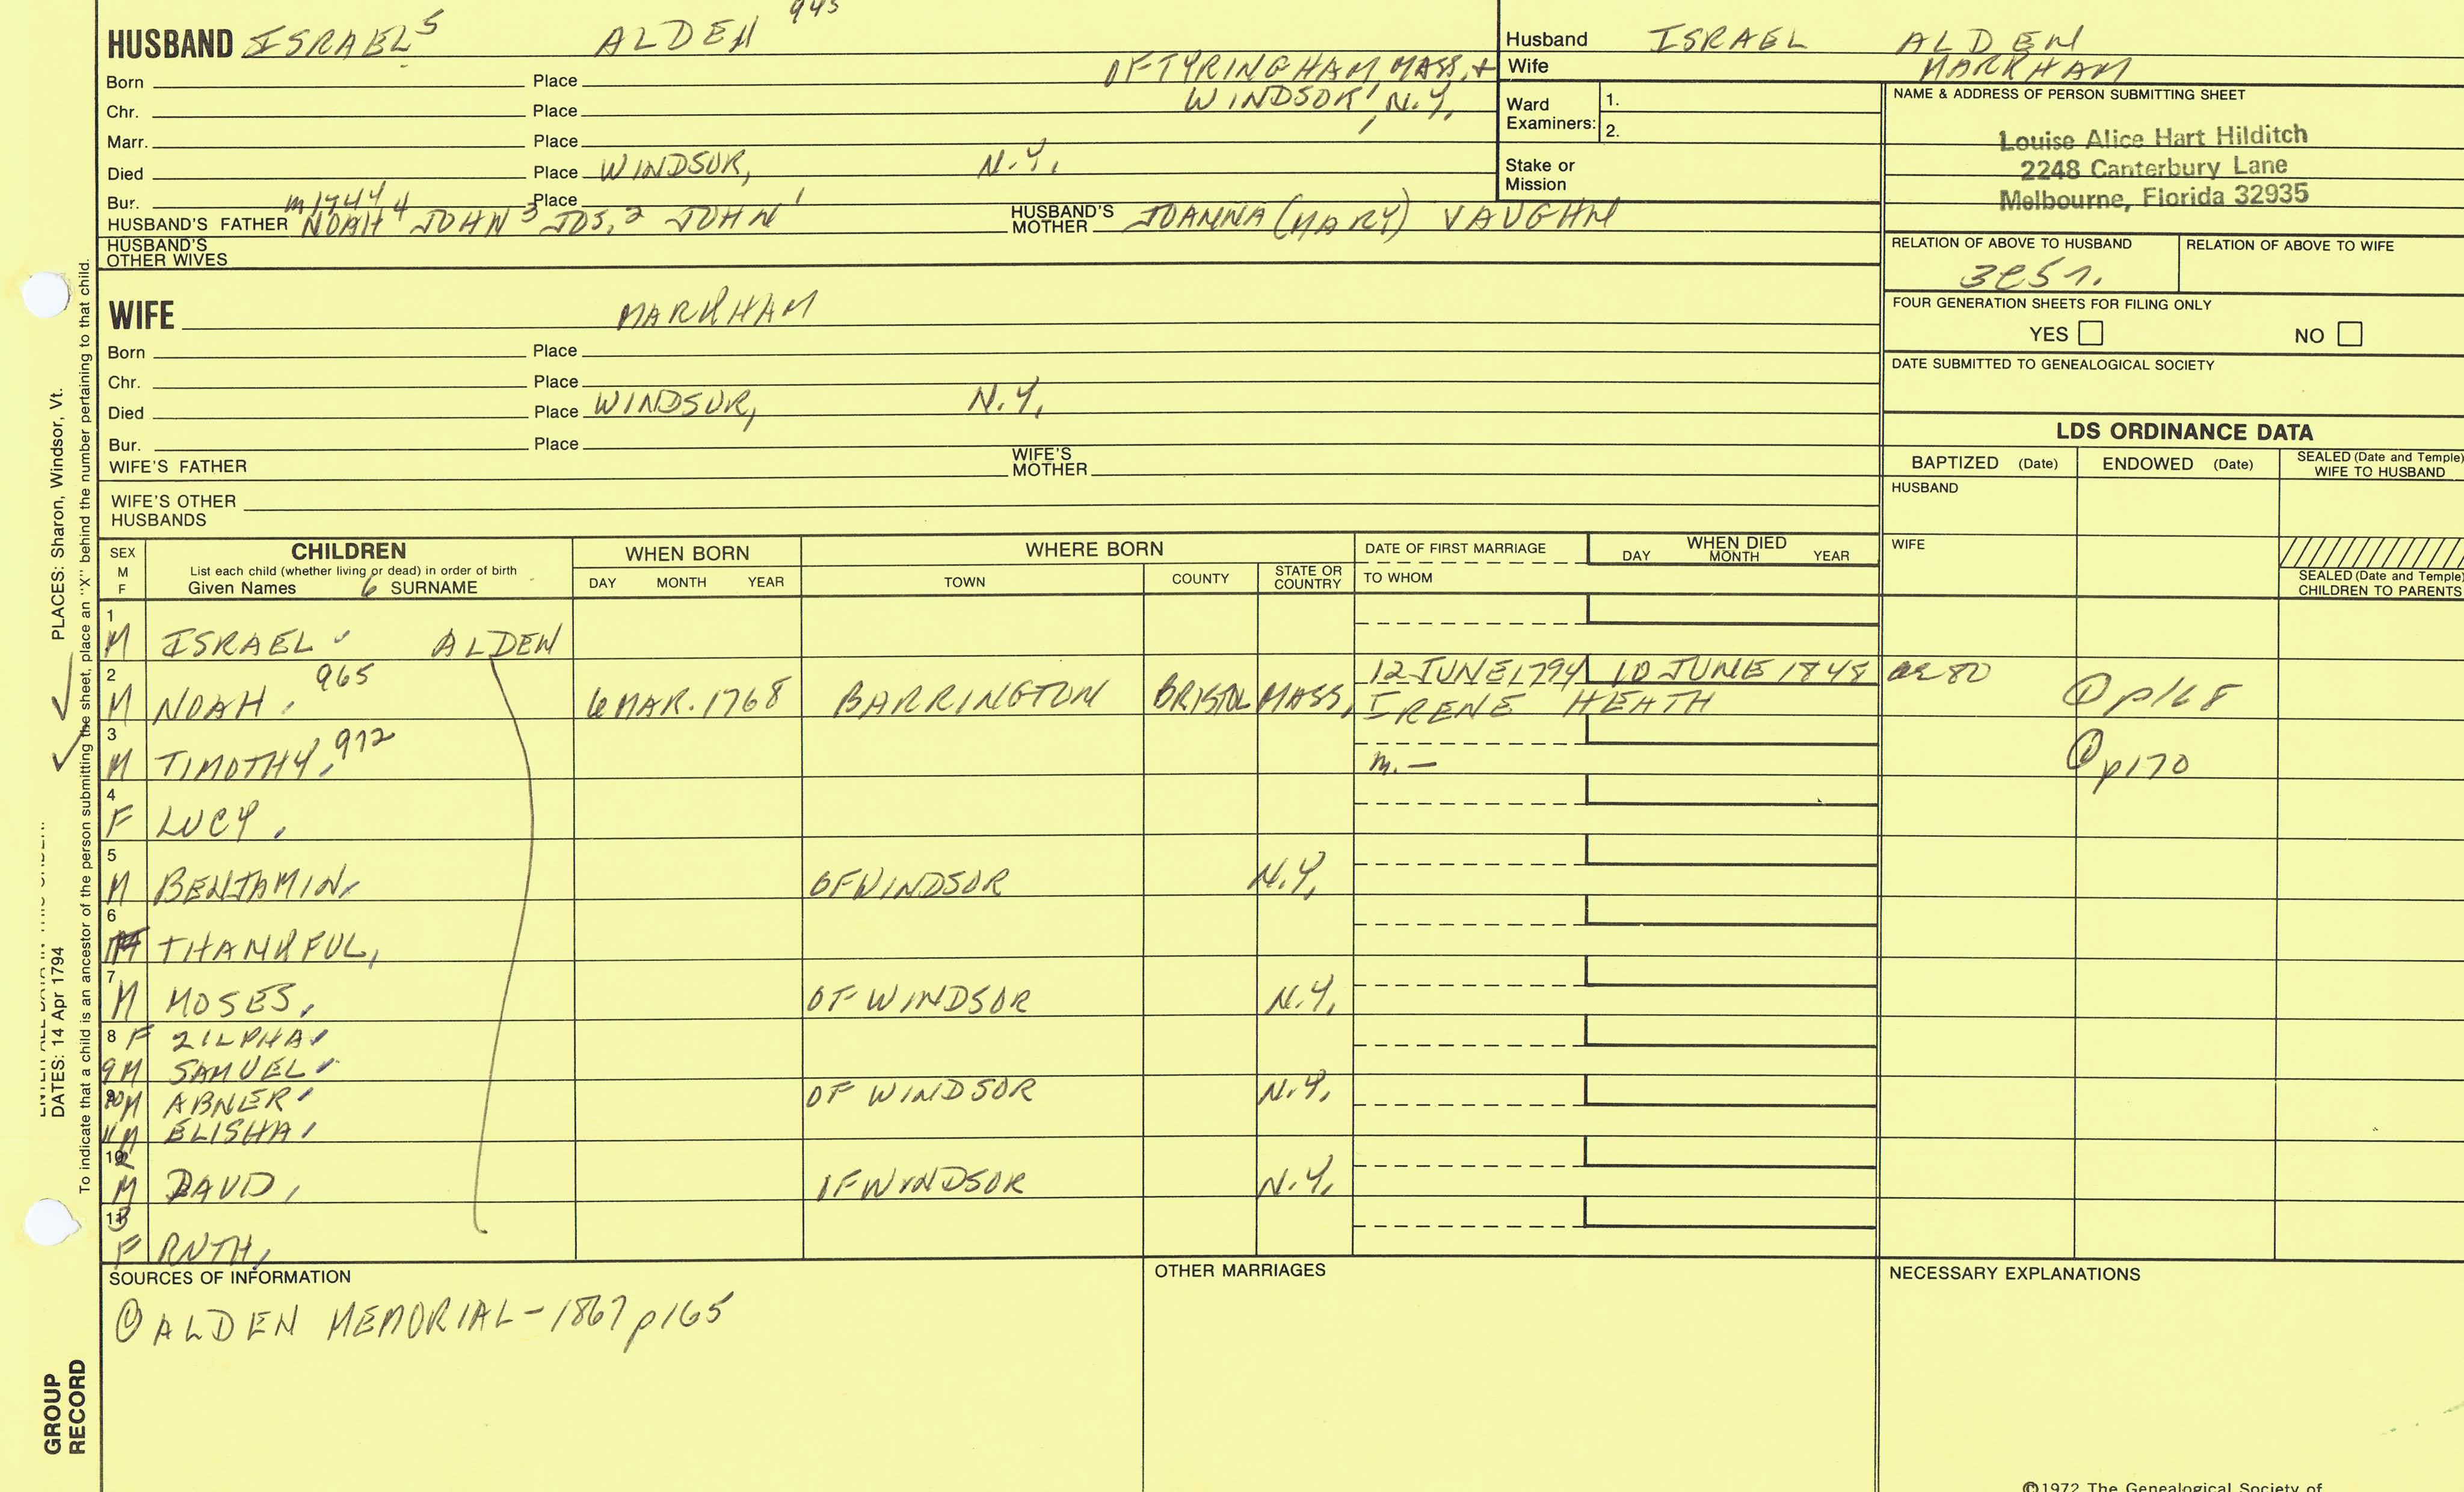 HUSBAND ISRAEL5 ALDEN 945
OF TYRINGHAM, MASS, +
Born Place
WINDSOR, N.Y,
Chr. Place
Marr. Place
Died Place WINDSOR, N.Y,
Bur. Place
HUSBAND'S FATHER NOAH4 JOHN3 JOS,2 JOHN1 HUSBAND'S MOTHER JOANNA (MARY) VAUGHN
HUSBAND'S OTHER WIVES
WIFE MARKHAM
Born Place
Chr. Place
Died Place WINDSOR, N.Y,
Bur. Place
WIFE'S FATHER WIFE'S MOTHER
WIFE'S OTHER HUSBANDS
Husband ISRAEL ALDEN
Wife MARKHAM
Ward Examiners: 1.
2.
Stake or Mission
NAME & ADDRESS OF PERSON SUBMITTING SHEET
Louise Alice Hart Hilditch
2248 Canterbury Lane
Melbourne, Florida 32935
RELATION OF ABOVE TO HUSBAND RELATION OF ABOVE TO WIFE
FOUR GENERATION SHEETS FOR FILING ONLY
YES NO
DATE SUBMITTED TO GENEALOGICAL SOCIETY
LDS ORDINANCE DATA
BAPTIZED (Date) ENDOWED (Date) SEALED (Date and Temple) WIFE TO HUSBAND
HUSBAND
WIFE
SEALED (Date and Temple) CHILDREN TO PARENTS
SEX M F CHILDREN WHEN BORN WHERE BORN DATE OF FIRST MARRIAGE WHEN DIED
List each child (whether living or dead) in order of birth
Given Names SURNAME DAY MONTH YEAR TOWN COUNTY STATE OR COUNTRY TO WHOM DAY MONTH YEAR
1 M ISRAEL ALDEN
2 M NOAH, 965 6 MAR. 1768 BARRINGTON BRISTOL MASS, 12 JUNE 1794 10 JUNE 1848 ae 80 ① p168
IRENE HEATH
3 M TIMOTHY, 972 m. — ① p170
4 F LUCY,
5 M BENJAMIN, OF WINDSOR N.Y,
6 THANKFUL,
7 M MOSES, OF WINDSOR N.Y,
8 F ZILPHA,
9 M SAMUEL,
10 M ABNER, OF WINDSOR N.Y,
11 M ELISHA,
12 M DAVID, OF WINDSOR N.Y,
13 F RUTH,
SOURCES OF INFORMATION
① ALDEN MEMORIAL - 1867 p165
OTHER MARRIAGES
NECESSARY EXPLANATIONS
©1972 The Genealogical Society of
PLACES: Sharon, Windsor, Vt.
DATES: 14 Apr 1794
To indicate that a child is an ancestor of the person submitting the sheet, place an "X" behind the number pertaining to that child.
GROUP RECORD